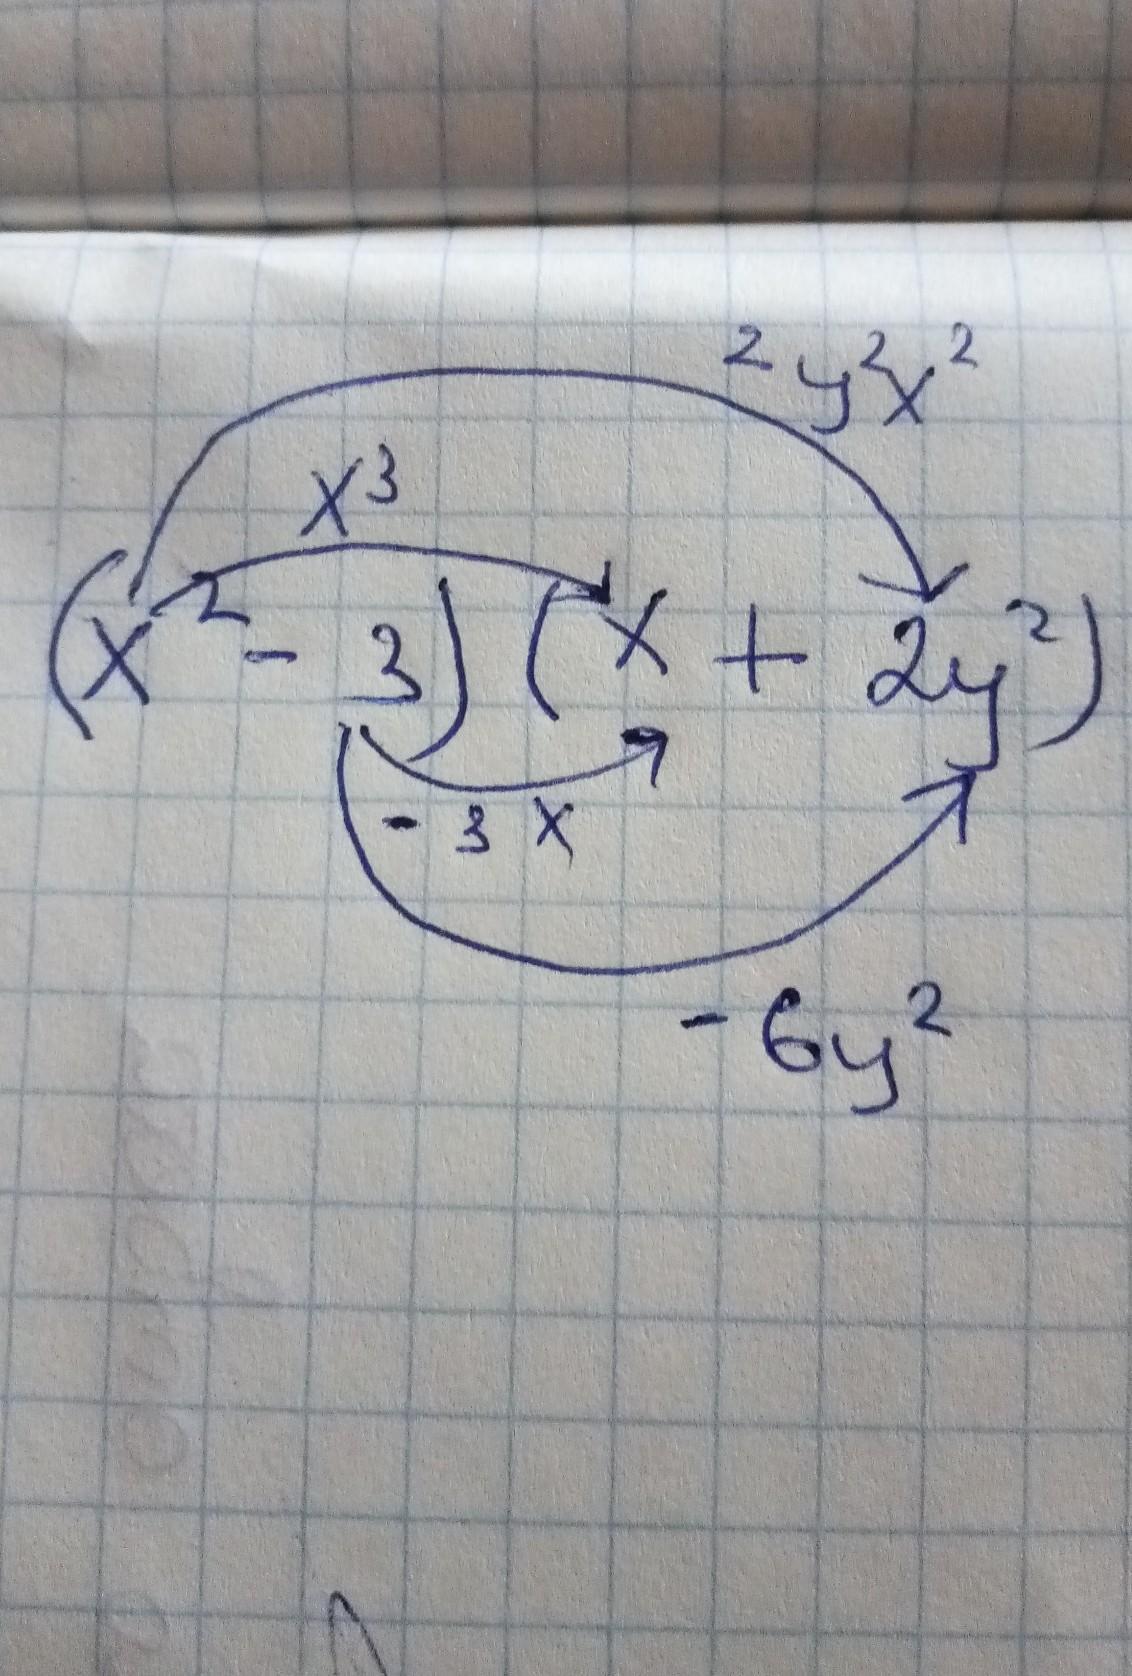 2y²x²
x³
(x² - 3) (x + 2y²)
- 3 x
- 6y²